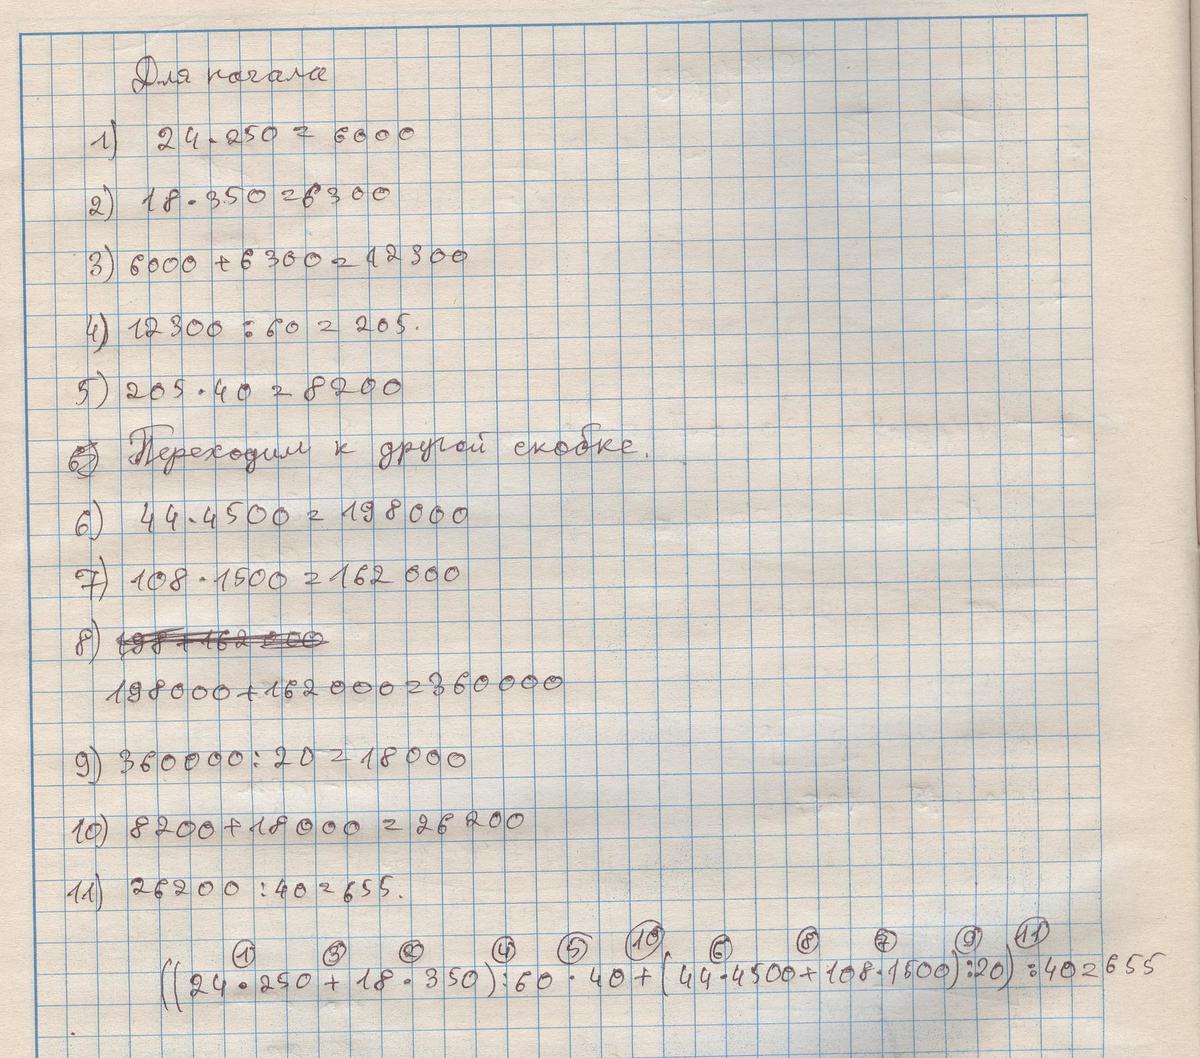 Для начала
1) 24·250=6000
2) 18·350=6300
3) 6000+6300=12300
4) 12300:60=205.
5) 205·40=8200
Переходим к другой скобке.
6) 44·4500=198000
7) 108·1500=162000
8) 198+162000
198000+162000=360000
9) 360000:20=18000
10) 8200+18000=26200
11) 26200:40=655.
1 3 2 4 5 10 6 8 7 9 11
((24·250+18·350):60·40+(44·4500+108·1500):20):40=655